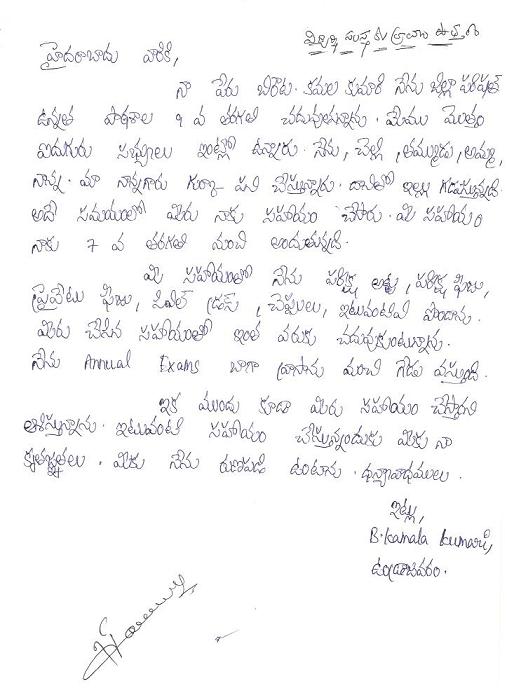 విద్యార్థి సంస్థ కు వ్రాయు ఉత్తరం
హైదరాబాదు వారికి,
నా పేరు బి. కమల కుమారి నేను జిల్లా పరిషత్
ఉన్నత పాఠశాల 9 వ తరగతి చదువుతున్నాను. మేము మొత్తం
ఐదుగురు సభ్యులు ఇంట్లో ఉన్నారు. నేను, చెల్లి, తమ్ముడు, అమ్మ,
నాన్న. మా నాన్నగారు గుర్కా పని చేస్తున్నారు. దానితో ఇల్లు గడుస్తున్నది.
అదే సమయంలో మీరు నాకు సహాయం చేసారు. మీ సహాయం
నాకు 7 వ తరగతి నుంచి అందుతున్నది.
మీ సహాయంతో నేను పరీక్ష అట్ట, పరీక్ష ఫీజు,
ప్రైవేటు ఫీజు, సివిల్ డ్రస్, చెప్పులు, ఇటువంటివి పొందాను.
మీరు చేసిన సహాయంతో ఇంత వరుకు చదువుకుంటున్నాను.
నేను Annual Exams బాగా వ్రాసాను మంచి గ్రేడు వస్తుంది.
ఇక ముందు కూడా మీరు సహాయం చేస్తారని
ఆశిస్తున్నాను. ఇటువంటి సహాయం చేస్తున్నందుకు మీకు నా
కృతజ్ఞతలు. మీకు నేను రుణపడి ఉంటాను. ధన్యావాధములు.
ఇట్లు,
B. Kamala Kumari,
ఉండ్రాజవరం.